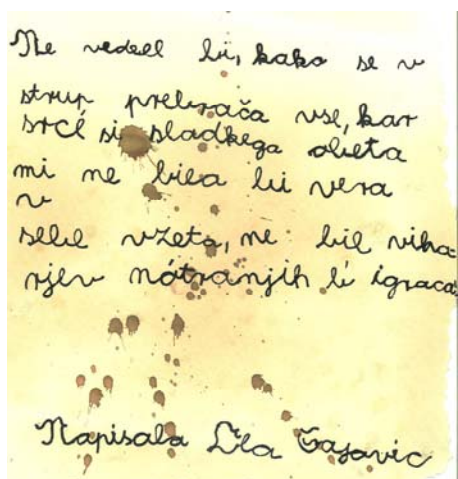 Ne vedel bi, kako se v
strup prebrača vse, kar
srcé si sladkega obeta
mi ne bila bi vera
v
sebe vzeta, ne bil viha-
rjev nótranjih b' igrača.
Napisala Ela Gajavic